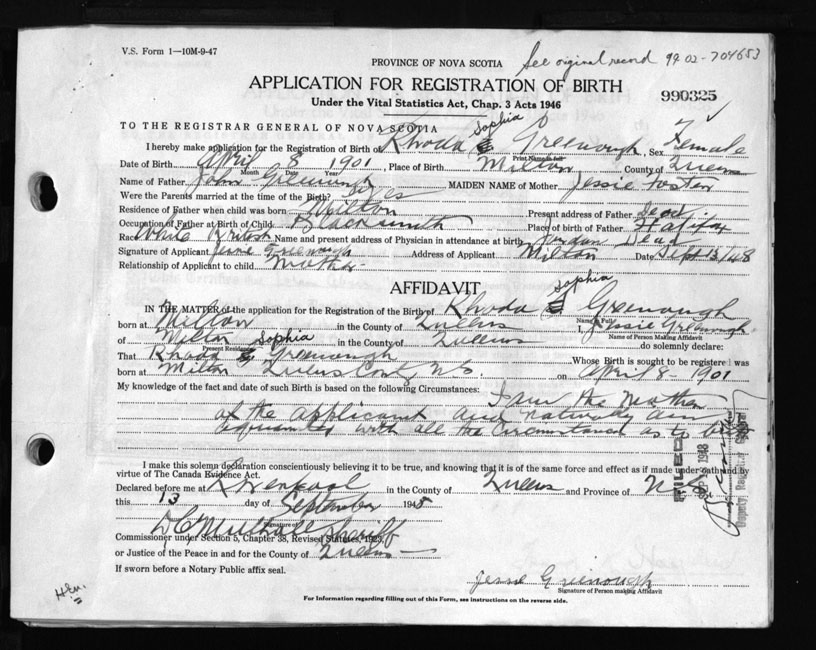 V.S. Form 1—10M-9-47
See original record 99 02 - 704653
PROVINCE OF NOVA SCOTIA
APPLICATION FOR REGISTRATION OF BIRTH
990325
Under the Vital Statistics Act, Chap. 3 Acts 1946
TO THE REGISTRAR GENERAL OF NOVA SCOTIA
Sophia
I hereby make application for the Registration of Birth of Rhoda Greenough, Sex Female
Print Name in full
Date of Birth April 8 1901, Place of Birth Milton County of Queens
Month Date Year
Name of Father John Greenough MAIDEN NAME of Mother Jessie Foster
Were the Parents married at the time of the Birth? Yes
Residence of Father when child was born Milton Present address of Father Dead
Occupation of Father at Birth of Child Blacksmith Place of birth of Father Halifax
Race White British Name and present address of Physician in attendance at birth Jordan Dead
Signature of Applicant Jessie Greenough Address of Applicant Milton Date Sept 13/48
Relationship of Applicant to child Mother
AFFIDAVIT
Sophia
IN THE MATTER of the application for the Registration of the Birth of Rhoda Greenough
Name in Full
born at Milton in the County of Queens I, Jessie Greenough
Name of Person Making Affidavit
of Milton in the County of Queens do solemnly declare:
Present Residence
Sophia
That Rhoda Greenough Whose Birth is sought to be registered was
born at Milton Queens Co N.S. on April 8 1901
My knowledge of the fact and date of such Birth is based on the following Circumstances:
I am the Mother
of the applicant and naturally am
acquainted with all the circumstances as to birth
I make this solemn declaration conscientiously believing it to be true, and knowing that it is of the same force and effect as if made under oath and by
virtue of The Canada Evidence Act.
Declared before me at Liverpool in the County of Queens and Province of N.S.
this 13 day of September 1948
Signature of
Sheriff
Commissioner under Section 5, Chapter 38, Revised Statutes, 1923,
or Justice of the Peace in and for the County of Queens
If sworn before a Notary Public affix seal.
Jessie Greenough
Signature of Person making Affidavit
For Information regarding filling out of this Form, see instructions on the reverse side.
FILED
1948
Deputy Registrar General